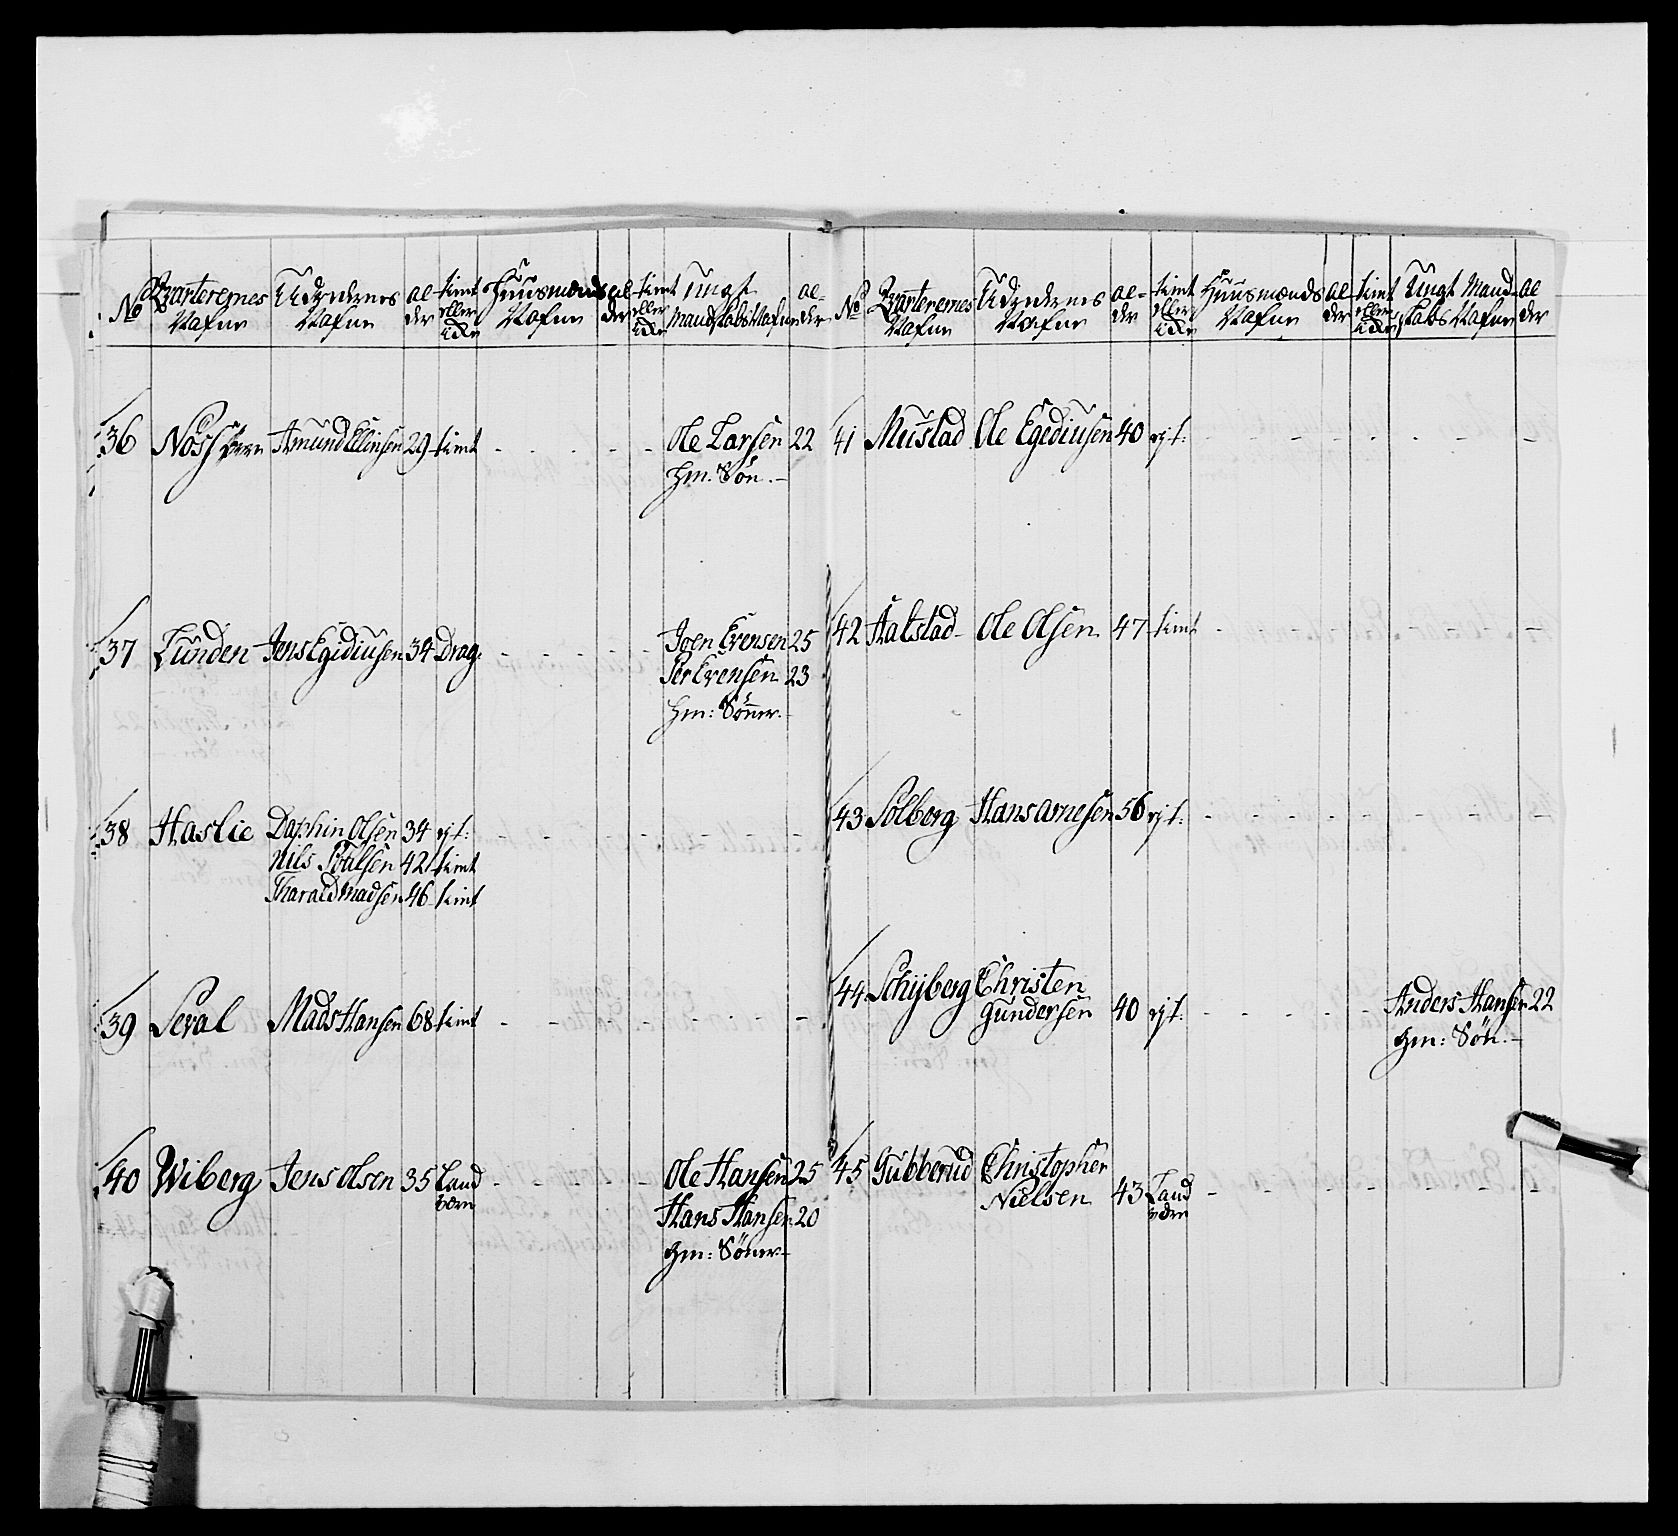 No Qvarterernes Nafne Eidendernes Nafne al- der tient eller icke Huusmænds Nafne al der tient eller icke Ungt Mandskabs Nafne al- der
36 Nøss Amund Ellingsen 29 tient - - - - - Ole Larsen 22
hm. Søn. -
37 Lunden Jens Egidiusen 34 Drag: - - - - - Joen Evensen 25
Per Evensen 23
hm: Sønner. -
38 Haslie Daphin Olsen 34 rjt: - - - - - -
Nils Povelsen 42 tient
Tharald Madsen 46 tient
39 Seval Mads Hansen 68 tient - - - - - -
40 Wiberg Jens Olsen 35 Land - - - - - Ole Hansen 25
værn Hans Hansen 20
hm: Sønner -
No Qvarterernes Nafne Eidendernes Nafne al- der tient eller icke Huusmænds Nafne al der tient eller icke Ungt Mand- skabs Nafne al der
41 Mustad Ole Egediusen 40 rjt: - - - - - -
42 Halstad Ole Olsen 47 tient - - - - - -
43 Solberg Hans Arnesen 56 rjt: - - - - - -
44 Schijberg Christen
Gundersen 40 rjt: - - - - - Anders Hansen 22
hm: Søn. -
45 Gubberud Christopher
Nielsen 43 Land - - - - - -
værn